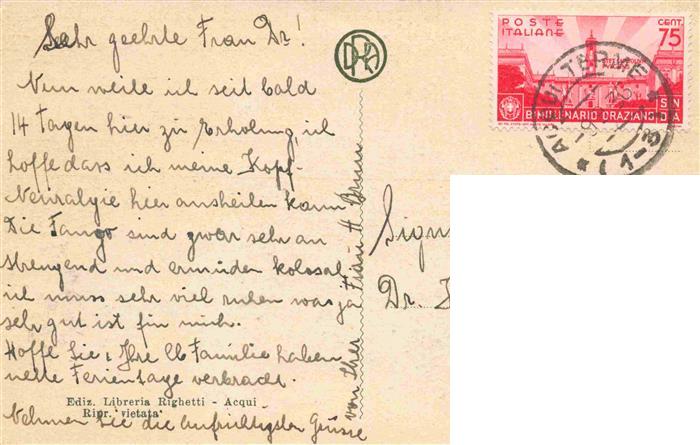 Sehr geehrte Frau Dr!
Nun weile ich seit bald
14 Tagen hier zu Erholung, ich
hoffe dass ich meine Kopf-
Neuralgie hier ausheilen kann
Die Fango sind zwar sehr an
strengend und ermüden kolossal
ich muss sehr viel ruhen was ja
sehr gut ist für mich.
Hoffe Sie & Ihre lb Familie haben
nette Ferientage verbracht.
Ediz. Libreria Righetti - Acqui
Ripr. vietata
Nehmen Sie die aufrichtigsten Grüsse
von Ihrer Frau H
POSTE
ITALIANE
CENT.
75
BIMILLENARIO ORAZIANO
ACQUI TERME
Sign
Dr.